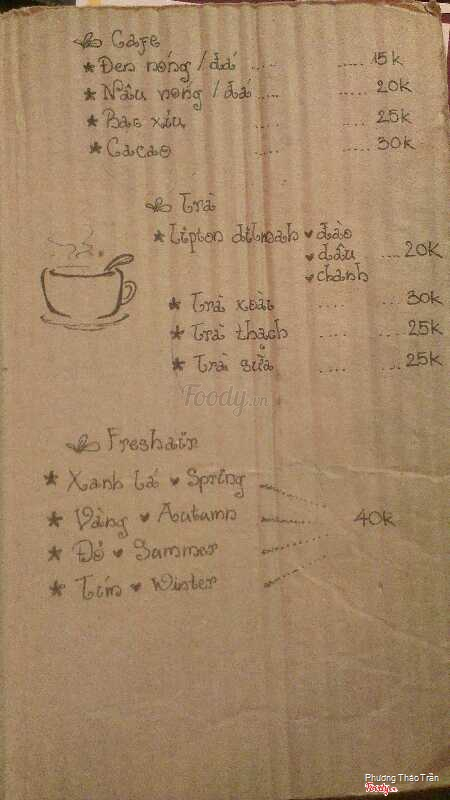 Cafe
* Đen nóng / đá ..... ..... 15k
* Nâu nóng / đá .... ..... 20k
* Bạc xỉu .... ..... 25k
* Cacao .... ..... 30k
Trà
* Lipton dilmah ♥ đào
♥ dâu .... 20k
♥ chanh
* Trà xoài .... .... 30k
* Trà thạch .... .... 25k
* Trà sữa .... .... 25k
Foody.vn
Freshair
* Xanh lá ♥ Spring
* Vàng ♥ Autumn 40k
* Đỏ ♥ Summer
* Tím ♥ Winter
Phương Thảo Trần
Foody.vn